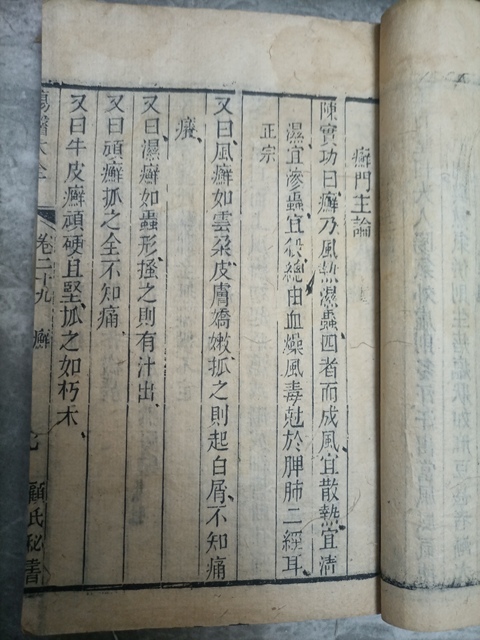 癬門主論
陳實功曰癬乃風熱濕蟲四者而成風宜散熱宜清
濕宜滲蟲宜殺總由血燥風毒尅於脾肺二經耳
正宗
又曰風癬如雲朶皮膚嬌嫩抓之則起白屑不知痛
癢
又曰濕癬如蟲形搔之則有汁出
又曰頑癬抓之全不知痛
又曰牛皮癬頑硬且堅抓之如朽木
瘍醫大全
卷二十九 癬
七
顧氏秘書